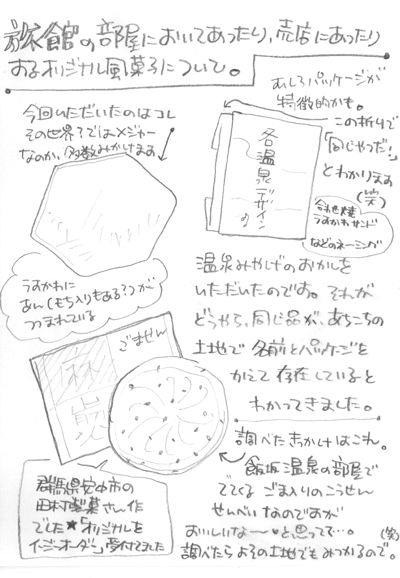 旅館の部屋においてあったり、売店にあったり
するオリジナル風菓子について。
今回いただいたのはコレ
その世界?ではメジャー
なのか、多数みかけます
むしろパッケージが
特徴的かも。
この折りで
「同じやつだ!」
とわかります
(笑)
各温泉デザイン
の
うすかわサンド
などのネーミング
うすかわに
あん(もち入りもある?)が
つつまれている
温泉みやげのおかしを
いただいたのです。それが
どうやら、同じ品が、あちこちの
土地で名前とパッケージを
かえて存在していると
わかってきました。
ごません
麻炭
調べたきっかけはこれ。
飯坂温泉の部屋で
でてくるごま入りのこうせん
せんべいなのですが
おいしいな〜♥と思ってて…。
調べたらよその土地でもみつかるので。
(笑)
群馬県安中市の
田村製菓さん作
でした★「オリジナルを
イージーオーダー」受付てました